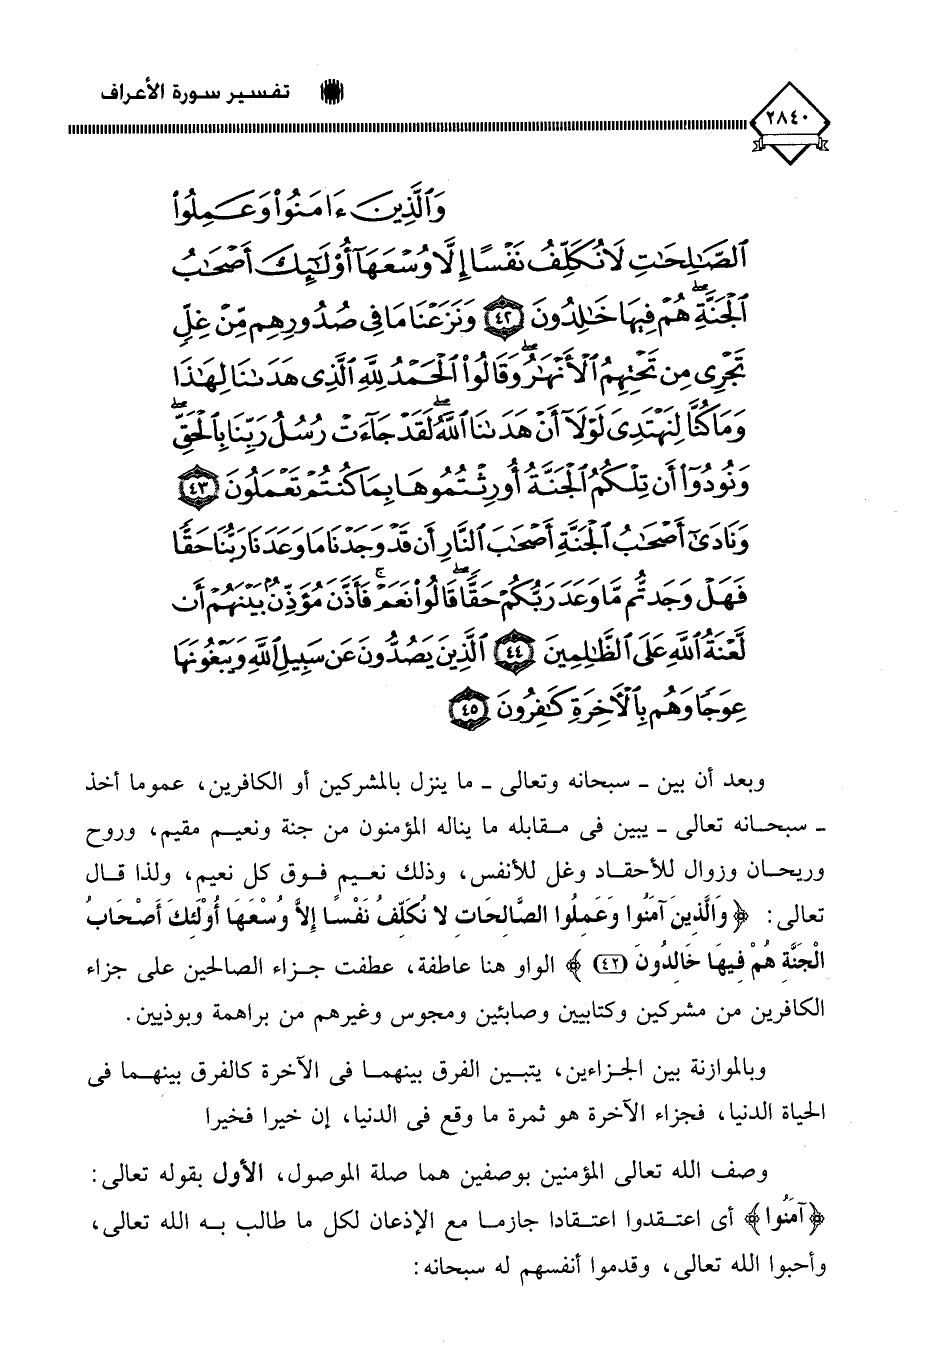 تفسير سورة الأعراف
٢٨٤٠
وَٱلَّذِينَ ءَامَنُوا۟ وَعَمِلُوا۟
ٱلصَّـٰلِحَـٰتِ لَا نُكَلِّفُ نَفْسًا إِلَّا وُسْعَهَآ أُو۟لَـٰٓئِكَ أَصْحَـٰبُ
ٱلْجَنَّةِ ۖ هُمْ فِيهَا خَـٰلِدُونَ ٤٢ وَنَزَعْنَا مَا فِى صُدُورِهِم مِّنْ غِلٍّ
تَجْرِى مِن تَحْتِهِمُ ٱلْأَنْهَـٰرُ ۖ وَقَالُوا۟ ٱلْحَمْدُ لِلَّهِ ٱلَّذِى هَدَىٰنَا لِهَـٰذَا
وَمَا كُنَّا لِنَهْتَدِىَ لَوْلَآ أَنْ هَدَىٰنَا ٱللَّهُ ۖ لَقَدْ جَآءَتْ رُسُلُ رَبِّنَا بِٱلْحَقِّ ۖ
وَنُودُوٓا۟ أَن تِلْكُمُ ٱلْجَنَّةُ أُورِثْتُمُوهَا بِمَا كُنتُمْ تَعْمَلُونَ ٤٣
وَنَادَىٰٓ أَصْحَـٰبُ ٱلْجَنَّةِ أَصْحَـٰبَ ٱلنَّارِ أَن قَدْ وَجَدْنَا مَا وَعَدَنَا رَبُّنَا حَقًّا
فَهَلْ وَجَدتُّم مَّا وَعَدَ رَبُّكُمْ حَقًّا ۖ قَالُوا۟ نَعَمْ ۚ فَأَذَّنَ مُؤَذِّنٌۢ بَيْنَهُمْ أَن
لَّعْنَةُ ٱللَّهِ عَلَى ٱلظَّـٰلِمِينَ ٤٤ ٱلَّذِينَ يَصُدُّونَ عَن سَبِيلِ ٱللَّهِ وَيَبْغُونَهَا
عِوَجًا وَهُم بِٱلْـَٔاخِرَةِ كَـٰفِرُونَ ٤٥
وبعد أن بين ـ سبحانه وتعالى ـ ما ينزل بالمشركين أو الكافرين، عموما أخذ
ـ سبحانه تعالى ـ يبين فى مقابله ما يناله المؤمنون من جنة ونعيم مقيم، وروح
وريحان وزوال للأحقاد وغل للأنفس، وذلك نعيم فوق كل نعيم، ولذا قال
تعالى: ﴿ وَالَّذِينَ آمَنُوا وَعَمِلُوا الصَّالِحَاتِ لا نُكَلِّفُ نَفْسًا إِلاَّ وُسْعَهَا أُوْلَئِكَ أَصْحَابُ
الْجَنَّةِ هُمْ فِيهَا خَالِدُونَ (٤٢) ﴾ الواو هنا عاطفة، عطفت جزاء الصالحين على جزاء
الكافرين من مشركين وكتابيين وصابئين ومجوس وغيرهم من براهمة وبوذيين.
وبالموازنة بين الجزاءين، يتبين الفرق بينهما فى الآخرة كالفرق بينهما فى
الحياة الدنيا، فجزاء الآخرة هو ثمرة ما وقع فى الدنيا، إن خيرا فخيرا
وصف الله تعالى المؤمنين بوصفين هما صلة الموصول، الأول بقوله تعالى:
﴿آمَنُوا﴾ أى اعتقدوا اعتقادا جازما مع الإذعان لكل ما طالب به الله تعالى،
وأحبوا الله تعالى، وقدموا أنفسهم له سبحانه: